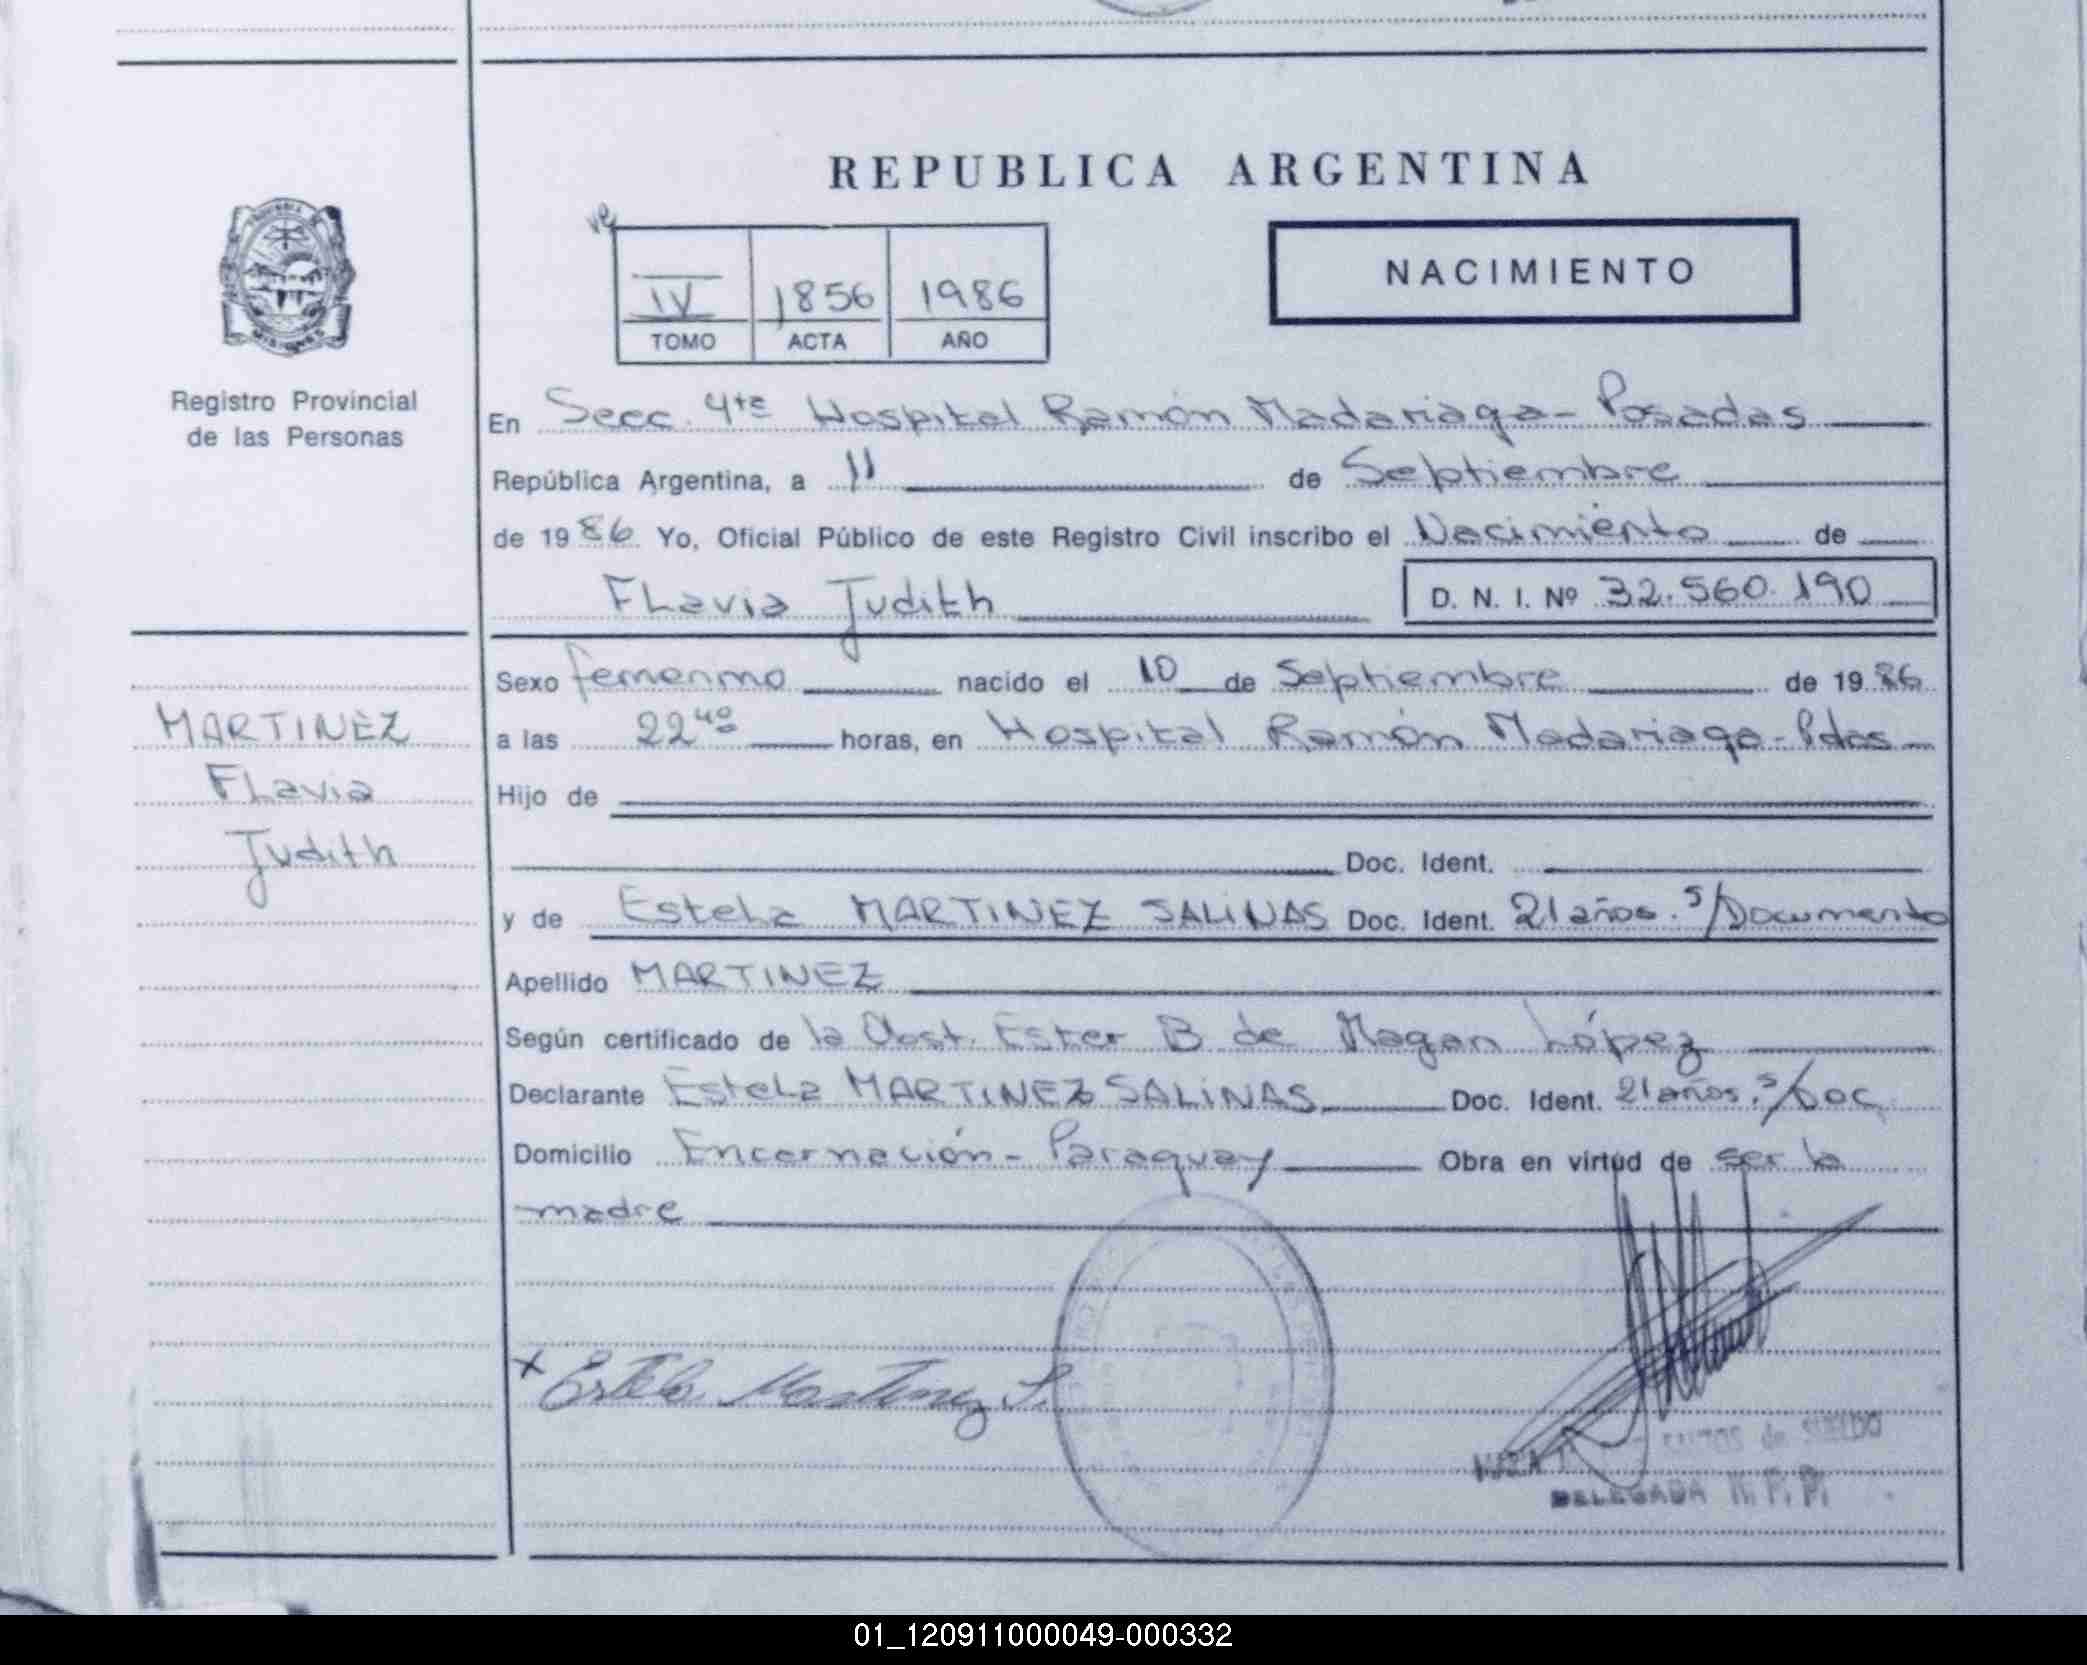 REPUBLICA ARGENTINA
IV 1856 1986
TOMO ACTA AÑO
NACIMIENTO
Registro Provincial
de las Personas
MARTINEZ
FLavia
Judith
En Secc. 4ta Hospital Ramón Madariaga - Posadas
República Argentina, a 11 de Septiembre
de 1986 Yo, Oficial Público de este Registro Civil inscribo el Nacimiento de
FLavia Judith D. N. I. Nº 32.560.190
Sexo femenino nacido el 10 de Septiembre de 1986
a las 22 40 horas, en Hospital Ramón Madariaga - Pdas
Hijo de
Doc. Ident.
y de Estela MARTINEZ SALINAS Doc. Ident. 21 años. s/Documento
Apellido MARTINEZ
Según certificado de la Obst. Ester B de Magan López
Declarante Estela MARTINEZ SALINAS Doc. Ident. 21 años. s/Doc
Domicilio Encarnación - Paraguay Obra en virtud de ser la
madre
x Estela Martinez S.
de SUELDO
DELEGADA
01_120911000049-000332